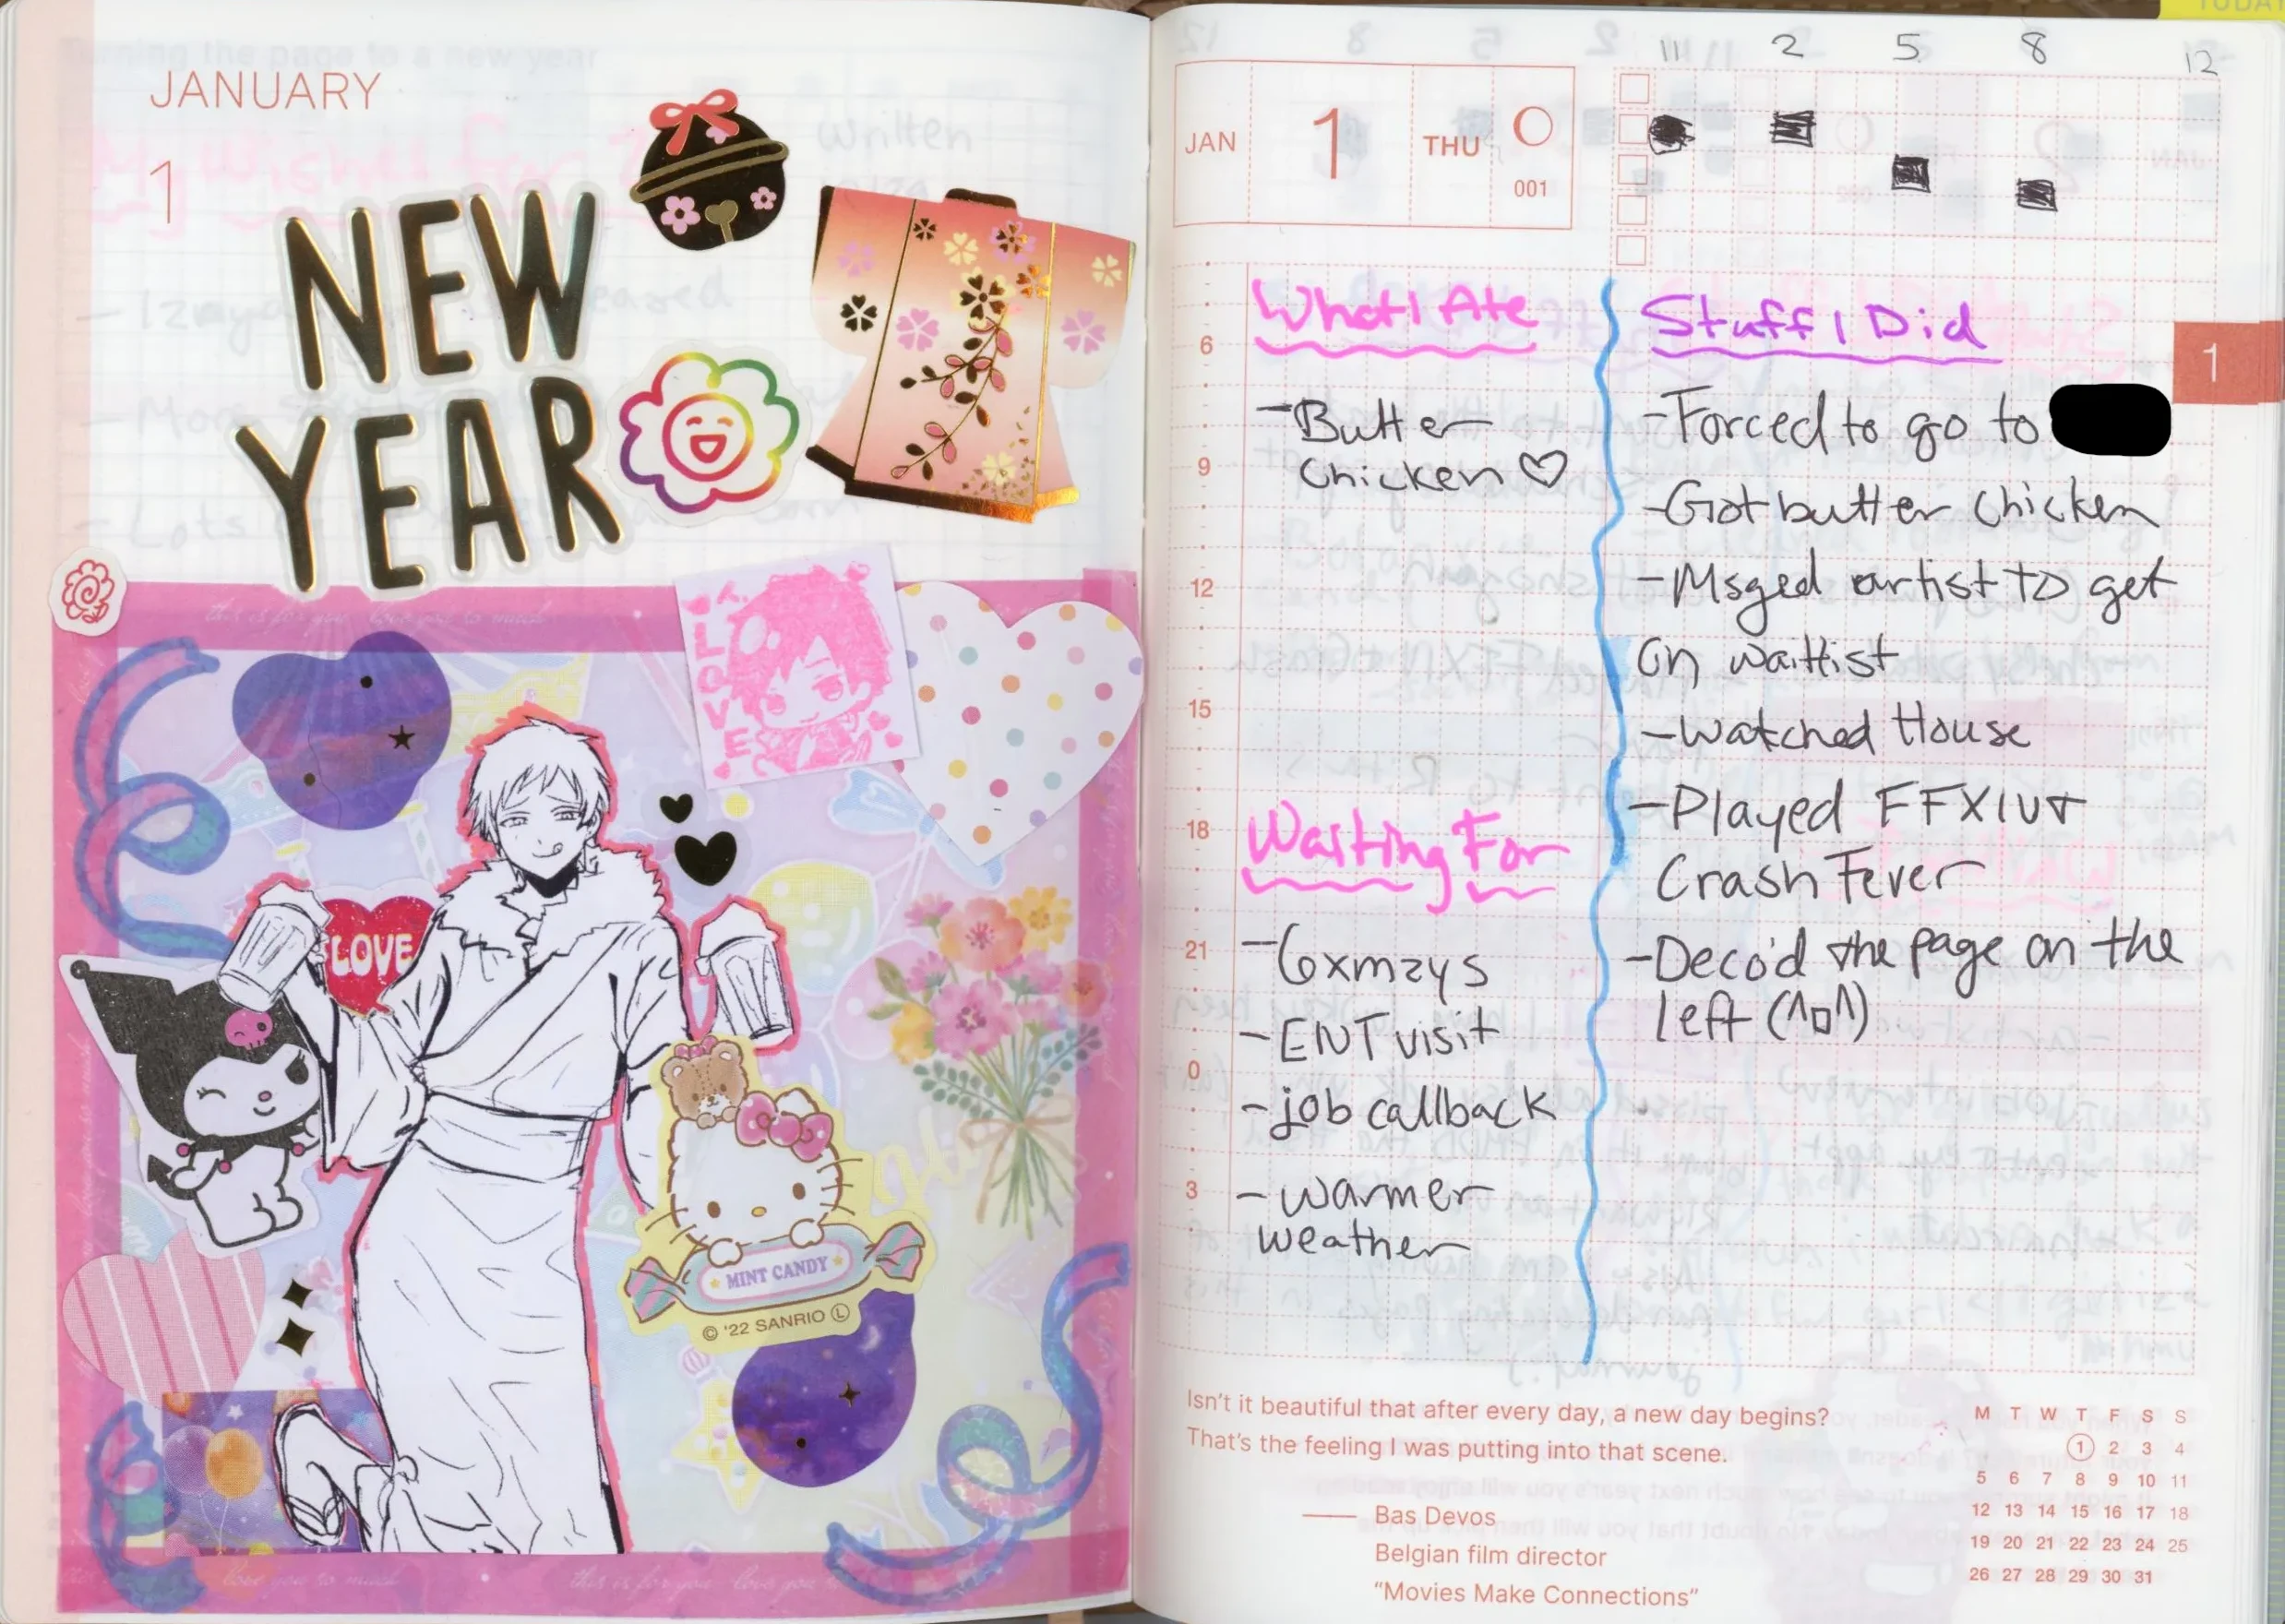 JANUARY
1
NEW
YEAR
LOVE
LOVE
MINT CANDY
© '22 SANRIO Ⓛ
11 2 5 8 12
JAN 1 THU
001
What I Ate
-Butter
Chicken ♡
Waiting For
-6xmzys
-ENT visit
-job callback
-warmer
weather
Stuff I Did
-Forced to go to
-Got butter chicken
-Msged artist to get
on waitlist
-Watched House
-Played FFXIV +
Crash Fever
-Deco'd the page on the
left (^□^)
1
6
9
12
15
18
21
0
3
Isn't it beautiful that after every day, a new day begins?
That's the feeling I was putting into that scene.
—— Bas Devos
Belgian film director
"Movies Make Connections"
M T W T F S S
1 2 3 4
5 6 7 8 9 10 11
12 13 14 15 16 17 18
19 20 21 22 23 24 25
26 27 28 29 30 31